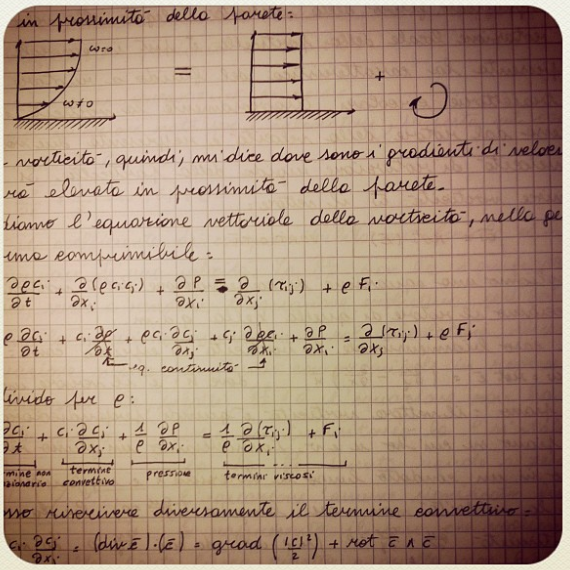 in prossimità della parete:
ω=0
= +
ω≠0
- vorticità, quindi, mi dice dove sono i gradienti di veloci
rà elevata in prossimità della parete.
diamo l'equazione vettoriale della vorticità, nella
uma comprimibile:
∂ρci/∂t + ∂(ρcicj)/∂xj + ∂P/∂xi = ∂/∂xj (τij) + ρFi
ρ ∂ci/∂t + ci ∂ρ/∂t + ρcj ∂ci/∂xj + ci ∂ρcj/∂xj + ∂P/∂xi = ∂(τij)/∂xj + ρFi
eq. continuità
divido per ρ:
∂ci/∂t + cj ∂ci/∂xj + 1/ρ ∂P/∂xi = 1/ρ ∂(τij)/∂xj + Fi
rmine non termine pressione termini viscosi
zionario convettivo
sso riscrivere diversamente il termine convettivo:
cj ∂ci/∂xj = (div c̄)·(c̄) = grad (|c|²/2) + rot c̄ ∧ c̄